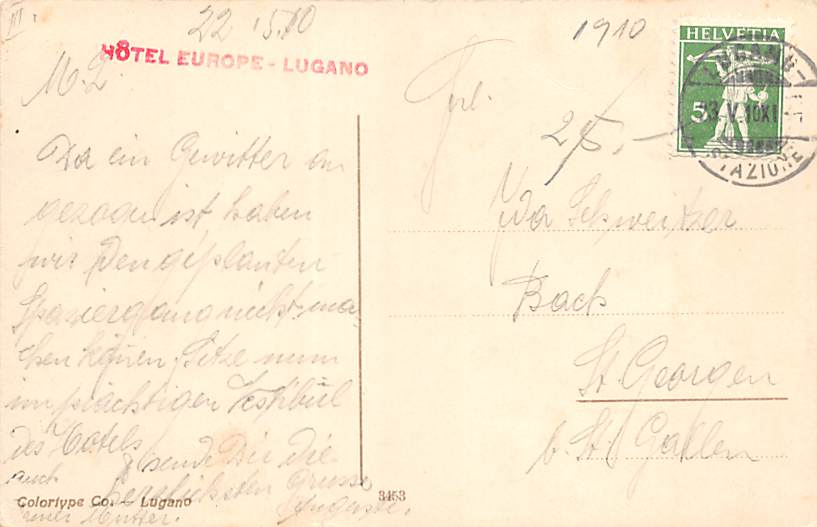 III.
22.5.10
HÔTEL EUROPE - LUGANO
M. L.
Da ein Gewitter an
gezogen ist haben
wir den geplanten
Spaziergang nicht ma-
chen können sitze nun
im prächtigen Vestibül
des Hotels
sende Dir die
herzlichsten Grüsse
Auguste.
auch
einer Mutter.
Colortype Co. – Lugano
3453
1910
HELVETIA
5
LUGANO
23.V.10XI
STAZIONE
Frl.
25,-
Ida Schweizer
Bach
St. Georgen
b. St. Gallen